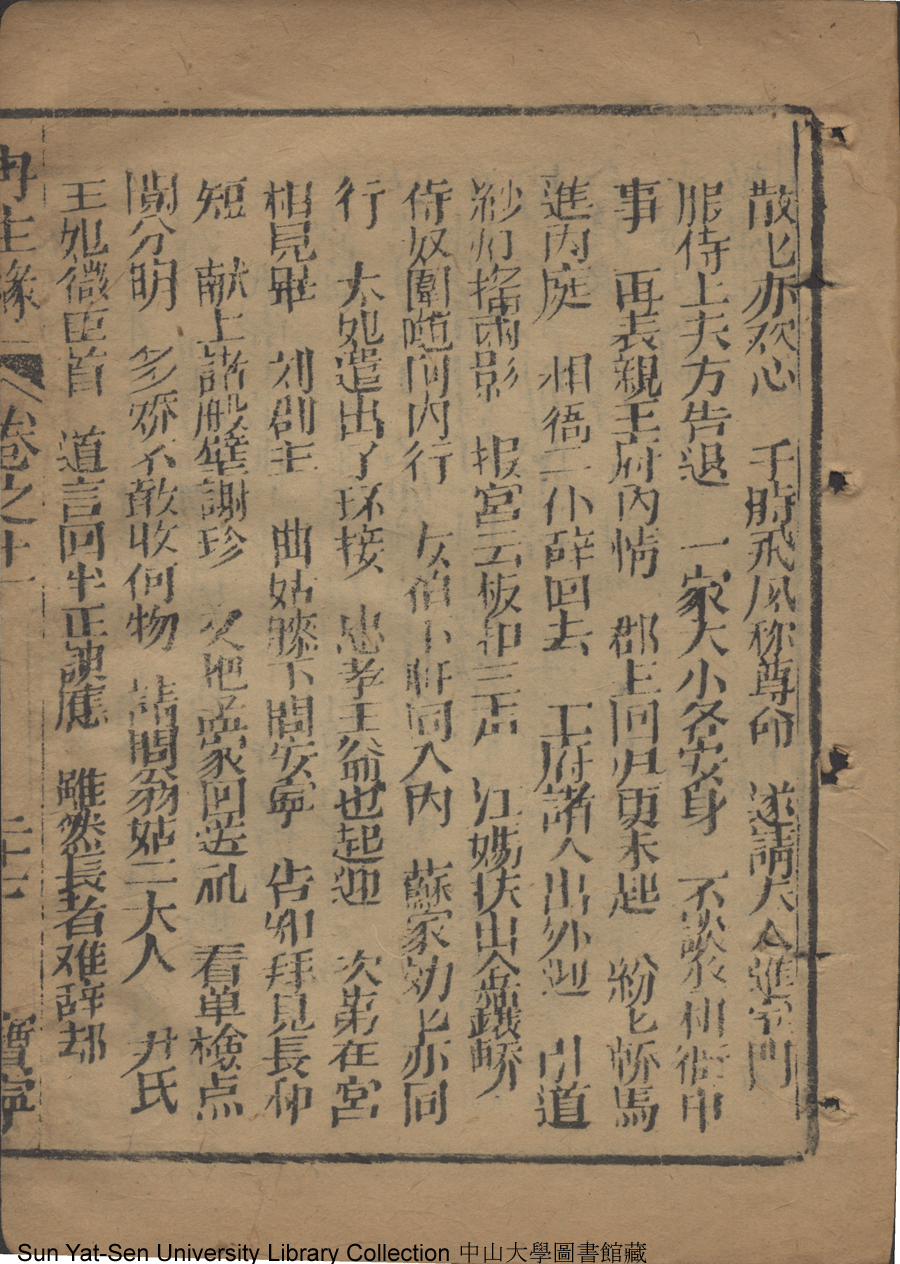 散七亦欢心　于時飛凤称尊命　遂請夫人進室門
服侍上夫方告退　一家大小各安身　不談衣相衙中
事　再表親王府內情　郡主回归更未起　紛七轎馬
進內庭　相衙二仆辞回去　王府諸人出外迎　引道
紗灯搖兩影　报宮云板卬三声　江媽扶出金鑲轎
侍奴圍随向內行　女伯下軒同入內　蘇家娘七亦同
行　太妃遣出了环接　忠孝王爺也起迎　次第在宮
相見畢　刘郡主　曲姑膝下問安寧　告知拜見長和
短　献上諸般壁謝珍　又把孟家回送礼　看单檢点
開分明　多娇不敢收何物　請問翁姑二大人　尹氏
王妃微臣首　道言回半正該應　雖然長者难辞却
再生緣　卷之十一　二十七　寶寧
Sun Yat-Sen University Library Collection 中山大學圖書館藏